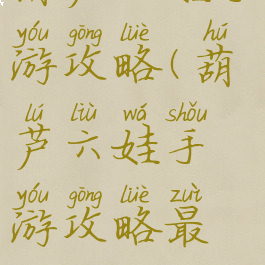 yóu gōng lüè hú
游攻略(葫
lú liù wá shǒu
芦六娃手
yóu gōng lüè zuì
游攻略最